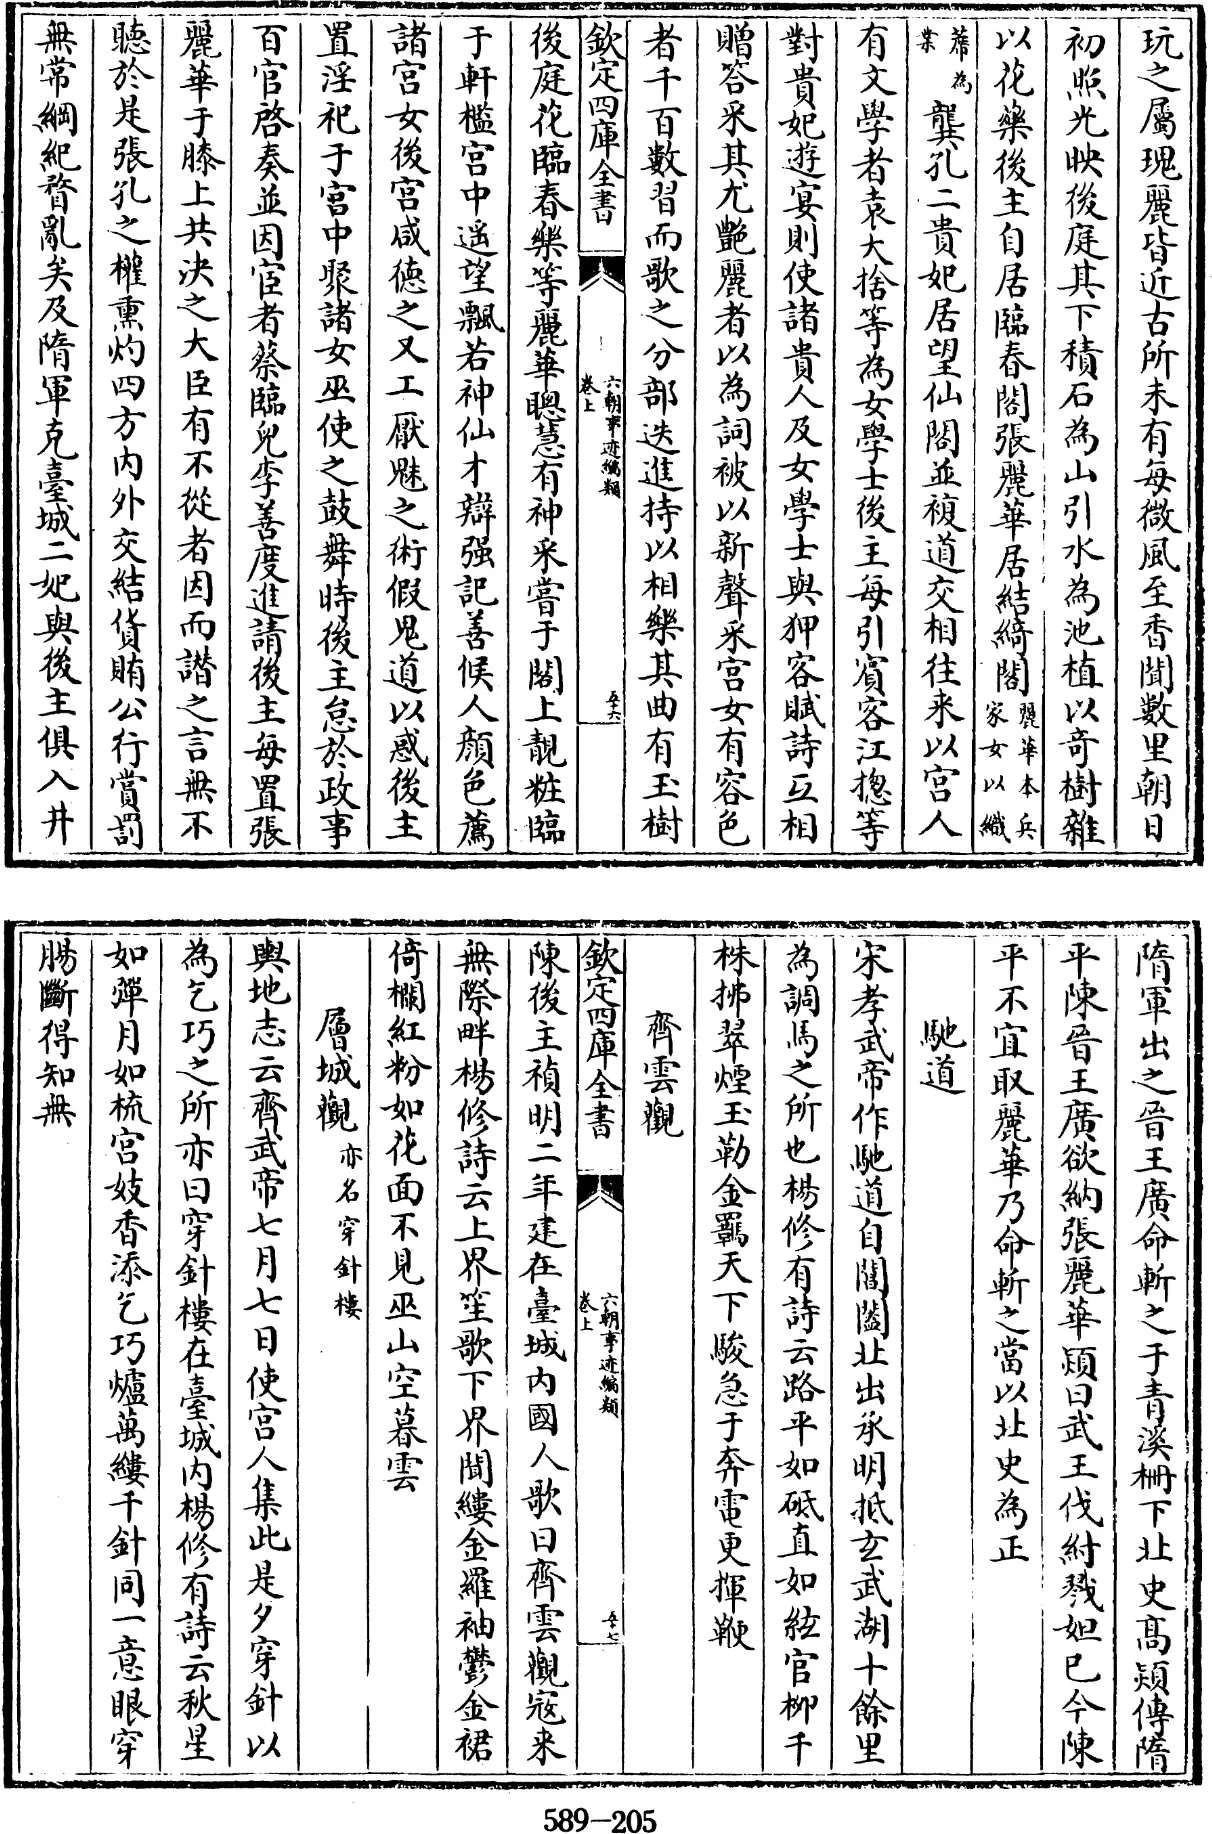 玩之屬瑰麗皆近古所未有每微風至香聞數里朝日
初照光映後庭其下積石為山引水為池植以奇樹雜
以花藥後主自居臨春閣張麗華居結綺閣麗華本兵家女以織
蓆為業龔孔二貴妃居望仙閣並複道交相往来以宫人
有文學者袁大捨等為女學士後主每引賓客江摠等
對貴妃遊宴則使諸貴人及女學士與狎客賦詩互相
贈答采其尤艶麗者以為詞被以新聲采宫女有容色
者千百數習而歌之分部迭進持以相樂其曲有玉樹
欽定四庫全書
六朝事迹編類
卷上
五十六
後庭花臨春樂等麗華聰慧有神采嘗于閣上靚粧臨
于軒檻宫中遥望飄若神仙才辯强記善候人顔色薦
諸宫女後宫咸德之又工厭魅之術假鬼道以惑後主
置淫祀于宫中聚諸女巫使之鼓舞時後主怠於政事
百官啓奏並因宦者蔡臨兒李善度進請後主每置張
麗華于膝上共决之大臣有不從者因而譖之言無不
聽於是張孔之權熏灼四方内外交結貨賄公行賞罰
無常綱紀瞀亂矣及隋軍克臺城二妃與後主俱入井
隋軍出之晉王廣命斬之于青溪柵下北史髙熲傳隋
平陳晉王廣欲納張麗華熲曰武王伐紂戮妲己今陳
平不宜取麗華乃命斬之當以北史為正
馳道
宋孝武帝作馳道自閶闔北出承明抵玄武湖十餘里
為調馬之所也楊修有詩云路平如砥直如絃官柳千
株拂翠煙玉勒金羈天下駿急于奔電更揮鞭
齊雲觀
欽定四庫全書
六朝事迹編類
卷上
五十七
陳後主禎明二年建在臺城内國人歌曰齊雲觀寇来
無際畔楊修詩云上界笙歌下界聞縷金羅袖鬱金裙
倚欄紅粉如花面不見巫山空暮雲
層城觀亦名穿針樓
輿地志云齊武帝七月七日使宫人集此是夕穿針以
為乞巧之所亦曰穿針樓在臺城内楊修有詩云秋星
如彈月如梳宫妓香添乞巧爐萬縷千針同一意眼穿
腸斷得知無
589-205